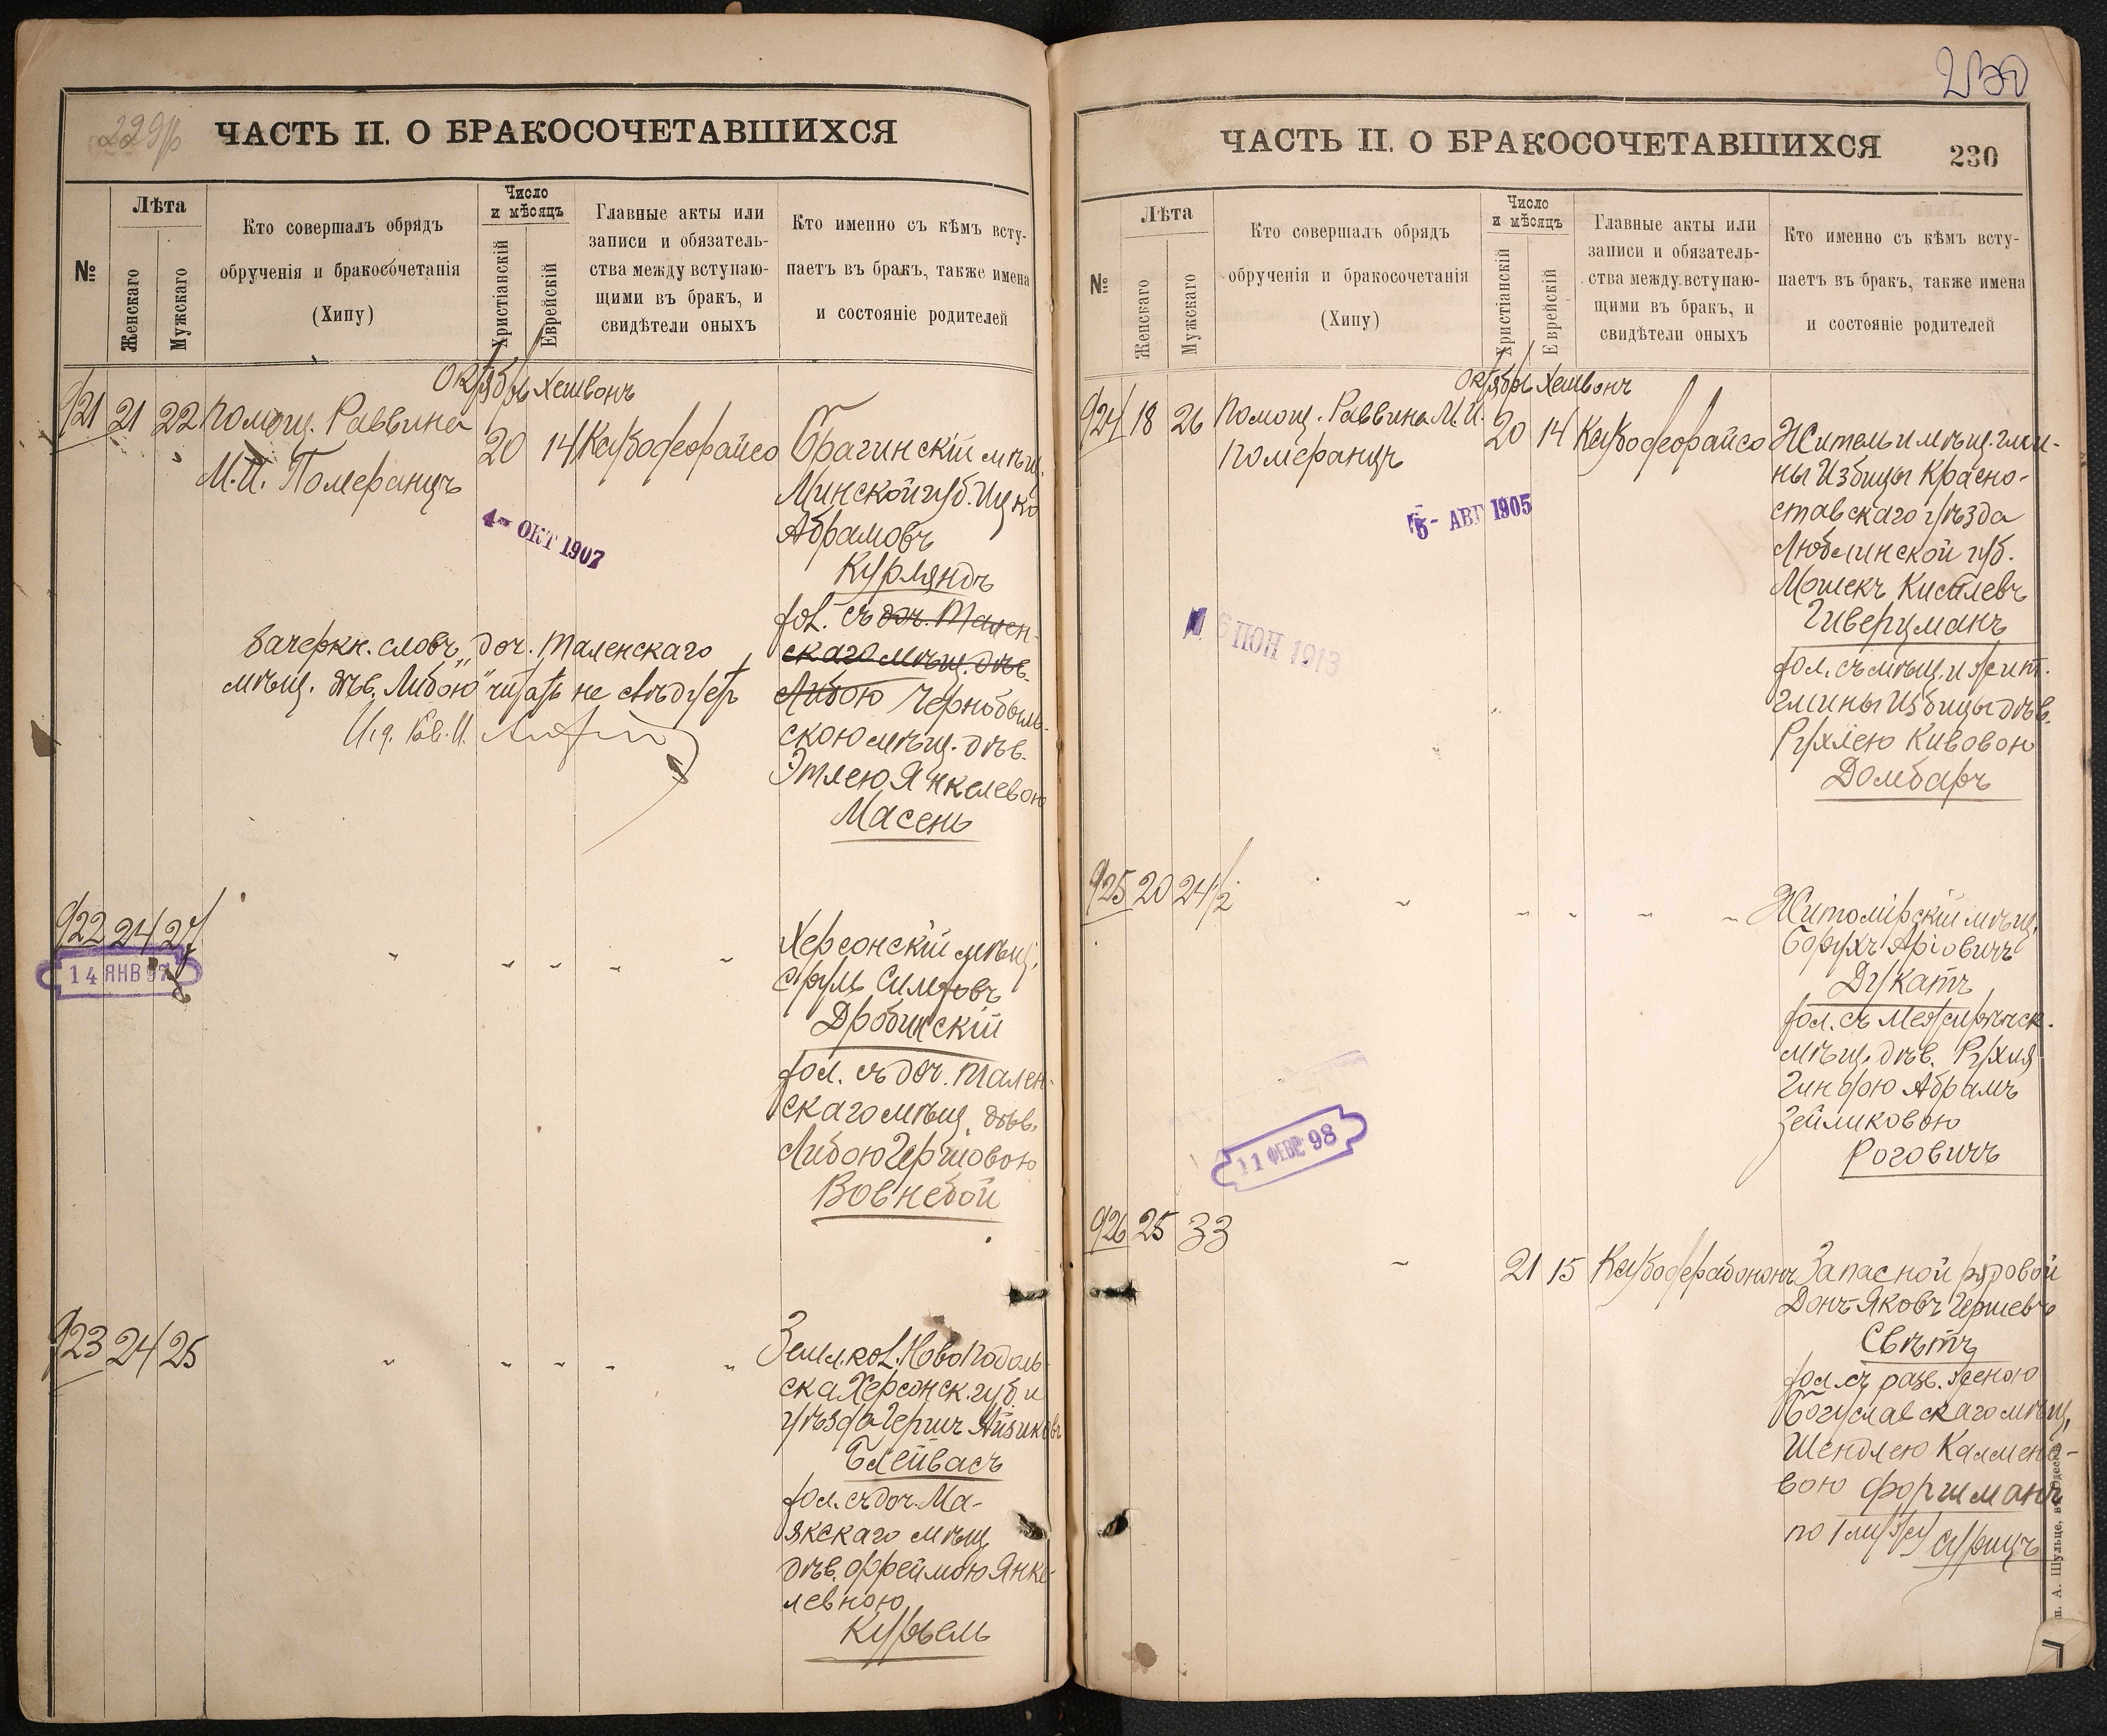 229об
ЧАСТЬ II. О БРАКОСОЧЕТАВШИХСЯ
№
Лѣта
Женскаго
Мужскаго
Кто совершалъ обрядъ
обрученія и бракосочетанія
(Хипу)
Число
и мѣсяцъ
Христіанскій
Еврейскій
Главные акты или
записи и обязатель-
ства между вступаю-
щими въ бракъ, и
свидѣтели оныхъ
Кто именно съ кѣмъ всту-
паетъ въ бракъ, также имена
и состояніе родителей
Октябрь Хешвонъ
921 21 22 Помощ. Раввина
М.И. Померанцъ
20 14
Брагинскій мѣщ.
Минской губ. Ицко
Абрамовъ
Курляндъ
хол. съ доч. Тален-
скаго мѣщ. дѣв.
Либою Чернобыль-
скою мѣщ. дѣв.
Этлею Янкелевою
Масень
4- ОКТ 1907
Зачеркн. словъ „доч. Таленскаго
мѣщ. дѣв. Либою" читать не слѣдуетъ
922 24 27
14 ЯНВ 97
" " " " "
Херсонскій мѣщ.
Сруль
Дробинскій
хол. съ доч. Тален-
скаго мѣщ. дѣв.
Либою Гершовою
Вовнебой
923 24 25
" " " " "
Земл. кол. Новоподоль-
ска Херсонск. губ. и
уѣзда Гершъ Айзиковъ
Блейвасъ
хол. съ доч. Ма-
якскаго мѣщ.
дѣв. Фреймою Янке-
левною
Курѣль
230
ЧАСТЬ II. О БРАКОСОЧЕТАВШИХСЯ
230
№
Лѣта
Женскаго
Мужскаго
Кто совершалъ обрядъ
обрученія и бракосочетанія
(Хипу)
Число
и мѣсяцъ
Христіанскій
Еврейскій
Главные акты или
записи и обязатель-
ства между вступаю-
щими въ бракъ, и
свидѣтели оныхъ
Кто именно съ кѣмъ всту-
паетъ въ бракъ, также имена
и состояніе родителей
Октябрь Хешвонъ
924 18 26 Помощ. Раввина М.И.
Померанцъ
20 14
Житель и мѣщ. гми-
ны Избицы Красно-
ставскаго уѣзда
Люблинской губ.
Мошекъ Киселевъ
Гиверцманъ
хол. съ мѣщ. и жит.
гмины Избицы дѣв.
Рухлею Кивовою
Домбаръ
5- АВГ 1905
ІЮН 1913
925 20 24 1/2
" " " " "
Житомірскій мѣщ.
Борухъ Аріовичъ
Дукатъ
хол. съ Межирѣчск.
мѣщ. дѣв. Рухля
Гиндою Абрамъ
Зейликовою
Роговичъ
11 ФЕВР 98
926 25 33
" 21 15
Запасной рядовой
Донъ-Яковъ Гершевъ
Свѣтъ
хол. съ разв. женою
Богуславскаго мѣщ.
Шендлею Калмено-
вою Форшманъ
по 1 мужу Сурицъ
п. А. Шульце, въ Одессѣ